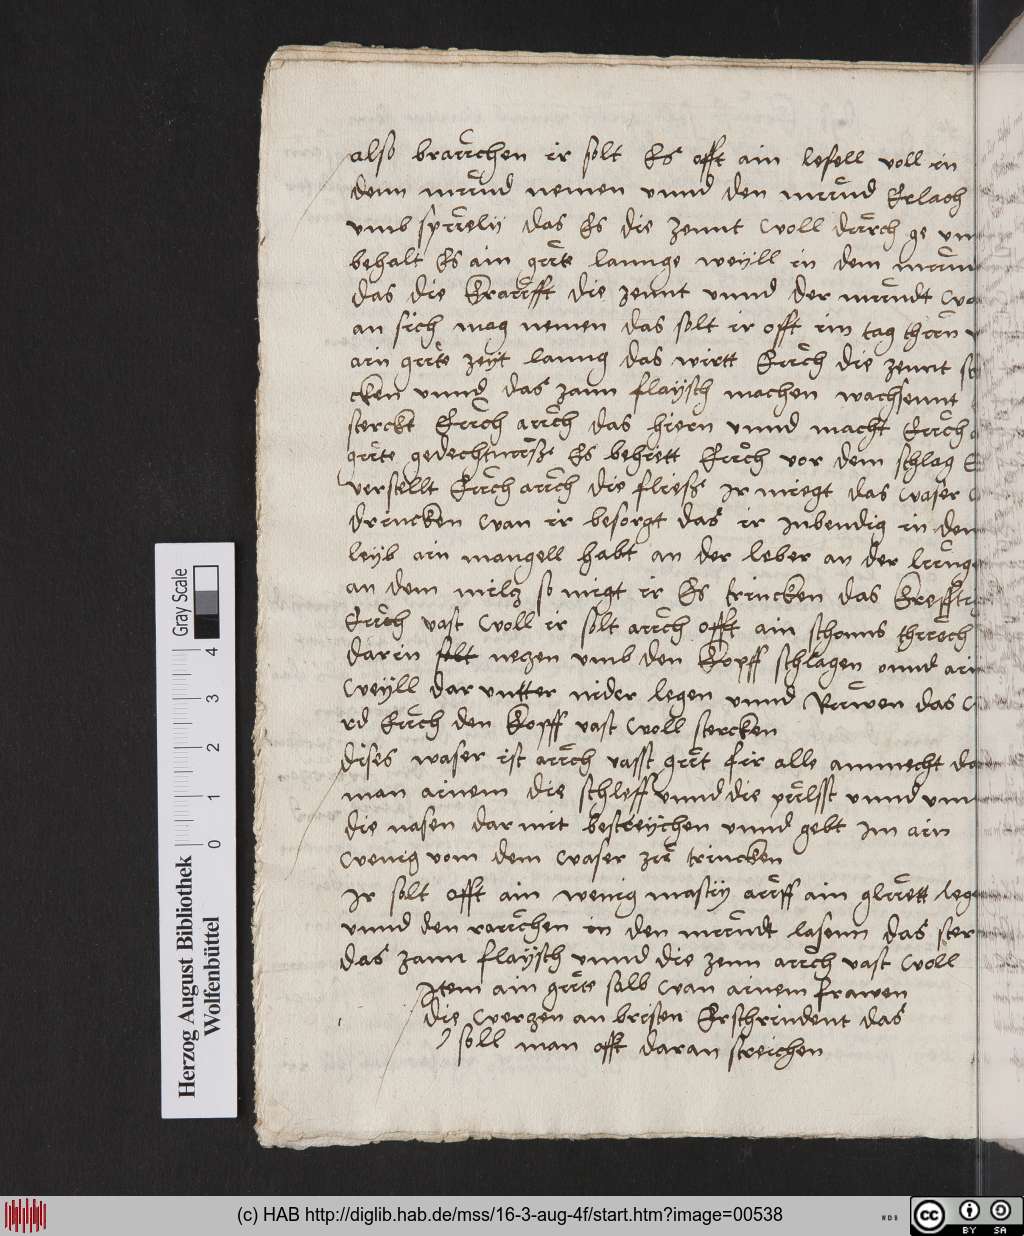 also brauchen ir solt Es offt ain lefell voll in
denn mund nemen vnnd den mund Erlach
vmb spuelij das Es die zennt woll durch ge vn
behalt Es ain gute lannge weyll in dem mun
das die Krauft die zennt vnnd der mundt wo
an sich mag nemen das solt ir offt im tag thun
ain gute zeyt lanng das wirtt Euch die zennt st
cken vnnd das zann flaysch machen wachsennt
sterckt Euch auch das hiern vnnd macht Euch
gute gedechtnuß Es behuett Euch vor dem schlag
verstellt Euch auch die fließ Ir miegt das waser
drincken wan ir besorgt das ir Inbendig in dem
leyb ain mangell habt an der leber an der lung
an dem milcz so migt ir Es trincken das Krefftig
Euch vast woll ir solt auch offt ain schenns thuech
darin nezen vmb den Kopff schlagen vnnd ain
weyll dar vntter nider legen vnnd Ruwen das
rd Euch den Kopff vast woll stercken
dises waser ist auch vasst gut fir alle amnecht da
man ainem die schleff vnnd die pulsst vnnd vm
die nasen dar mit bestreychen vnnd gebt Im ain
wenig vom dem waser zu trincken
Ir solt offt ain wenig mastix auff ain gluett leg
vnnd den rauchen in den mundt lasenn das ster
das zann flaysch vnnd die zenn auch vast woll
Item ain gute salb wan ainem frawen
die werzen an bristen Erschrindent das
soll man offt daran streichen
Herzog August Bibliothek
Wolfenbüttel
0 1 2 3 4
Gray Scale
(c) HAB http://diglib.hab.de/mss/16-3-aug-4f/start.htm?image=00538
cc BY SA